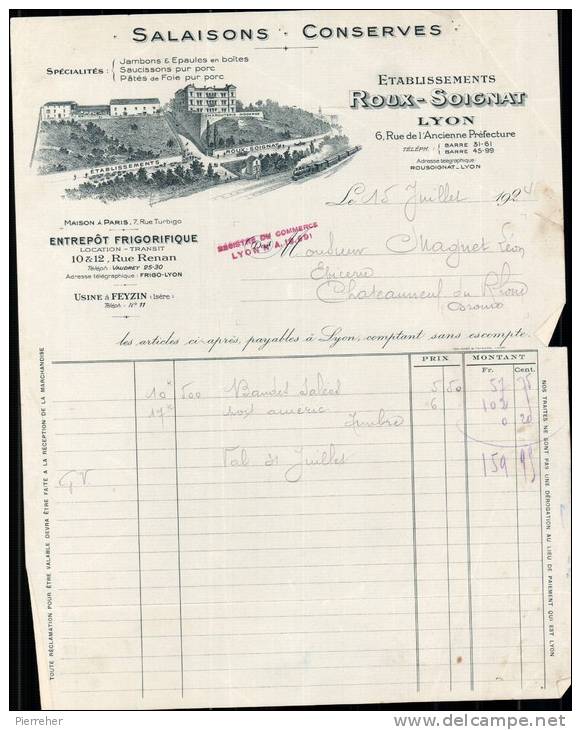 SALAISONS - CONSERVES
SPÉCIALITÉS :
Jambons & Epaules en boîtes
Saucissons pur porc
Pâtés de Foie pur porc
CHARCUTERIE MODERNE
ÉTABLISSEMENTS
ROUX-SOIGNAT
ETABLISSEMENTS
ROUX-SOIGNAT
LYON
6, Rue de l'Ancienne Préfecture
TÉLÉPH:
BARRE 31-61
BARRE 45-99
Adresse télégraphique:
ROUSOIGNAT-LYON
Le 15 Juillet 192
MAISON À PARIS, 7, Rue Turbigo
ENTREPÔT FRIGORIFIQUE
LOCATION - TRANSIT
10 & 12, Rue Renan
Téléph: VAUDREY 25-30
Adresse télégraphique: FRIGO-LYON
USINE À FEYZIN (Isère)
Téléph: N° 11
REGISTRE DU COMMERCE
LYON A.
Monsieur Magnet Léon
Epicerie
Chateauneuf du Rhône
les articles ci-après, payables à Lyon, comptant sans escompte.
PRIX MONTANT
Fr. Cent.
10 K 500 Bandes Salées 5 50 57 75
17 K 6 102
Timbre 0 20
Val 31 Juillet 159 95
GV
TOUTE RÉCLAMATION POUR ÊTRE VALABLE DEVRA ÊTRE FAITE A LA RÉCEPTION DE LA MARCHANDISE
NOS TRAITES NE SONT PAS UNE DÉROGATION AU LIEU DE PAIEMENT QUI EST LYON
Pierreher
www.delcampe.net